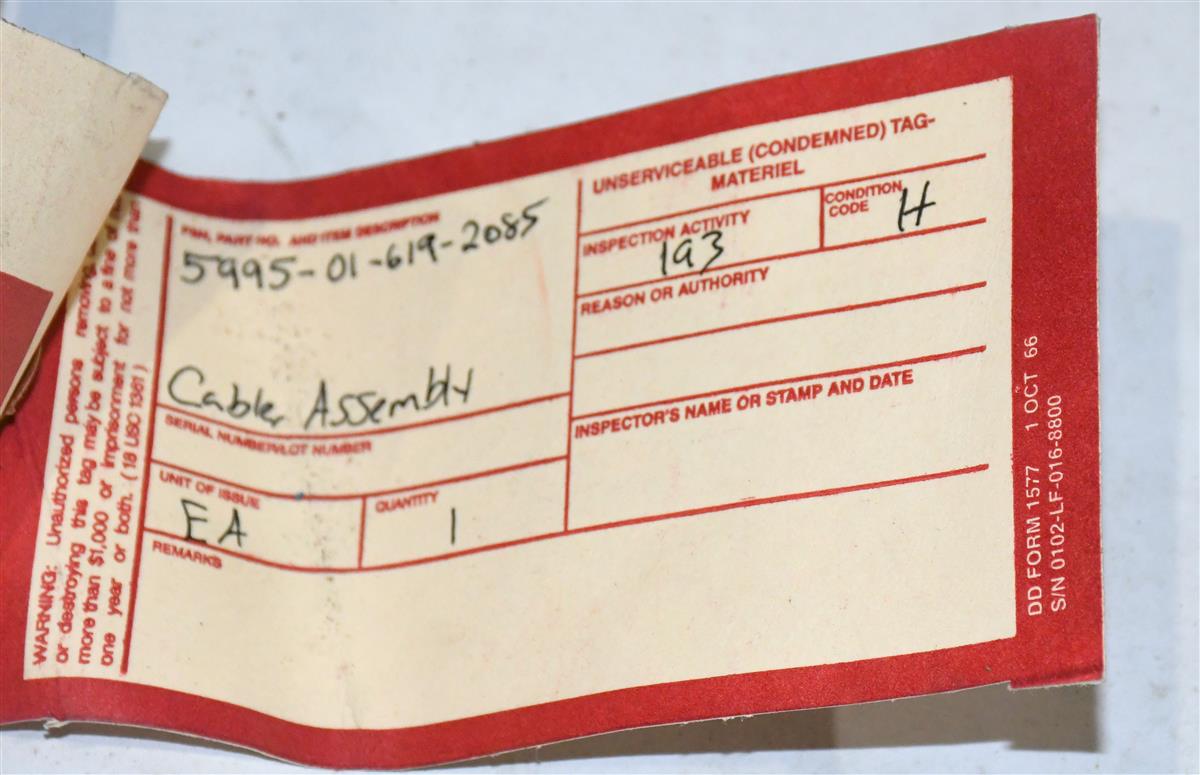 WARNING: Unauthorized persons removing
or destroying this tag may be subject to a fine of
more than $1,000 or imprisonment for not more than
one year or both. (18 USC 1361)
FSN, PART NO. AND ITEM DESCRIPTION
5995-01-619-2085
Cable Assembly
SERIAL NUMBER/LOT NUMBER
UNIT OF ISSUE
EA
QUANTITY
1
REMARKS
UNSERVICEABLE (CONDEMNED) TAG-
MATERIEL
INSPECTION ACTIVITY
193
CONDITION
CODE
H
REASON OR AUTHORITY
INSPECTOR'S NAME OR STAMP AND DATE
DD FORM 1577 1 OCT 66
S/N 0102-LF-016-8800